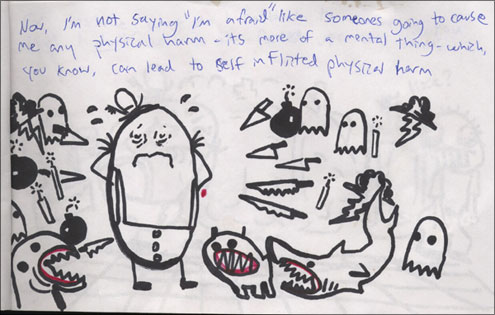 Now, I'm not saying "I'm afraid" like someones going to cause
me any physical harm - its more of a mental thing - which,
you know, can lead to self inflicted physical harm